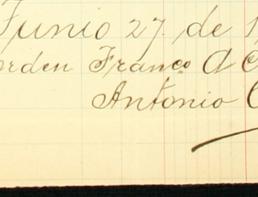 Junio 27. de 1
orden Franco A C
Antonio C